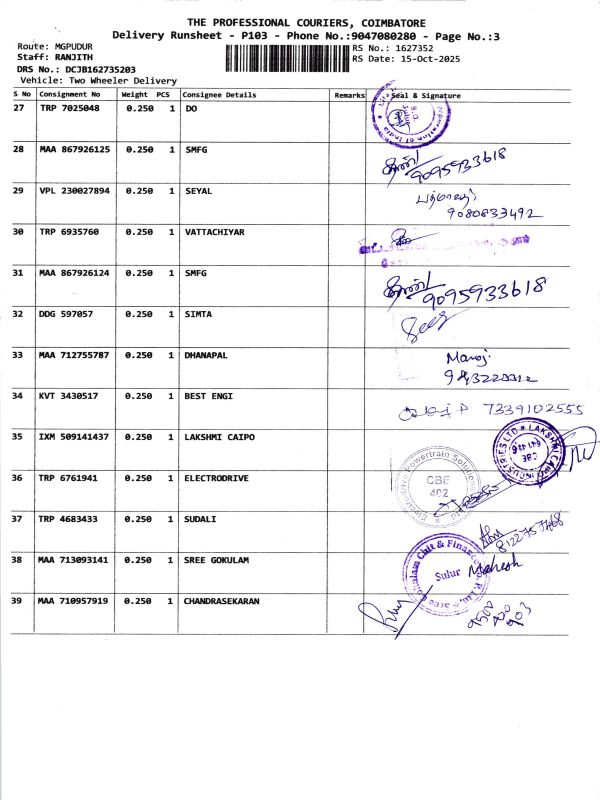 THE PROFESSIONAL COURIERS, COIMBATORE
Delivery Runsheet - P103 - Phone No.:9047080280 - Page No.:3
Route: MGPUDUR
RS No.: 1627352
Staff: RANJITH
RS Date: 15-Oct-2025
DRS No.: DCJB162735203
Vehicle: Two Wheeler Delivery
S No Consignment No Weight PCS Consignee Details Remarks Seal & Signature
27 TRP 7025048 0.250 1 DO
28 MAA 867926125 0.250 1 SMFG
9095933618
29 VPL 230027894 0.250 1 SEYAL
9080833492
30 TRP 6935760 0.250 1 VATTACHIYAR
31 MAA 867926124 0.250 1 SMFG
9095933618
32 DDG 597057 0.250 1 SIMTA
33 MAA 712755787 0.250 1 DHANAPAL
Manoj
34 KVT 3430517 0.250 1 BEST ENGI
7339102555
35 IXM 509141437 0.250 1 LAKSHMI CAIPO
CBE
36 TRP 6761941 0.250 1 ELECTRODRIVE
Electrodrive Powertrain Solutions
CBE
402
37 TRP 4683433 0.250 1 SUDALI
38 MAA 713093141 0.250 1 SREE GOKULAM
Sulur
Mahesh
39 MAA 710957919 0.250 1 CHANDRASEKARAN
9500
900
903